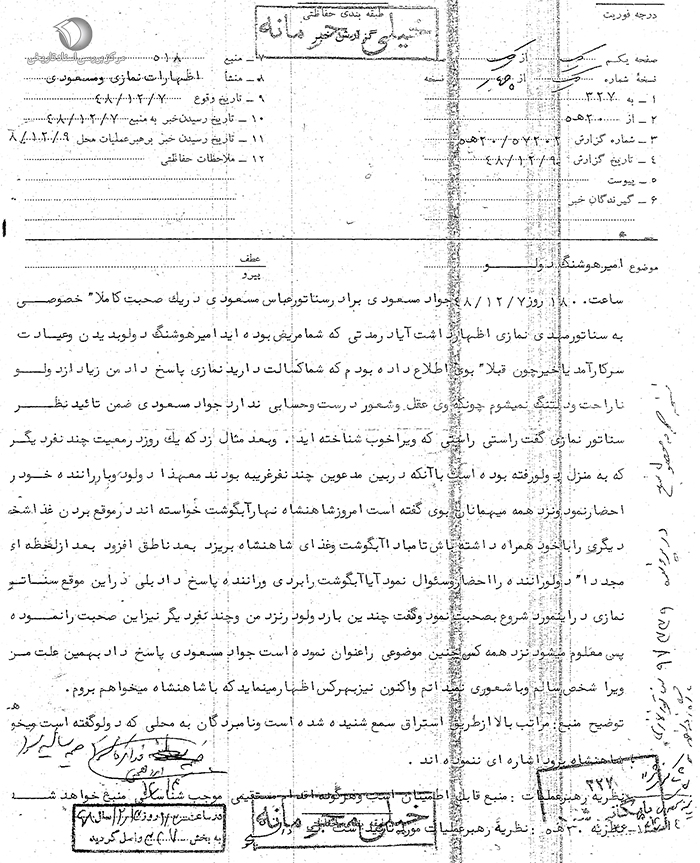 درجه فوریت
طبقه بندی حفاظتی
گزارش خبر
خیلی محرمانه
مرکز بررسی اسناد تاریخی
صفحه یکم از
نسخه شماره از نسخه
۱ ـ به ۳۲۷
۲ ـ از ۲۰ ه‍ ۵
۳ ـ شماره گزارش ۵۷۲۰۲/۲۰ه‍ ۵
۴ ـ تاریخ گزارش ۴۸/۱۲/۹
۵ ـ پیوست
۶ ـ گیرندگان خبر
۷ ـ منبع ۵۱۸
۸ ـ منشأ اظهارات نمازی ومسعودی
۹ ـ تاریخ وقوع ۴۸/۱۲/۷
۱۰ ـ تاریخ رسیدن خبر به منبع ۴۸/۱۲/۷
۱۱ ـ تاریخ رسیدن خبر برهبر عملیات محل ۸/۱۲/۹
۱۲ ـ ملاحظات حفاظتی
موضوع امیرهوشنگ دولو
عطف
پیرو
ساعت ۱۸۰۰ روز ۴۸/۱۲/۷ جواد مسعودی برادر سناتور عباس مسعودی در یك صحبت کاملاً خصوصی
به سناتور مهدی نمازی اظهار داشت آیا در مدتی که شما مریض بوده اید امیرهوشنگ دولو بدیدن وعیادت
سرکار آمد یا خیر چون قبلاً بوی اطلاع داده بودم که شما کسالت دارید نمازی پاسخ داد من زیاد از دولو
ناراحت ودلتنگ نمیشوم چونکه وی عقل وشعور درست وحسابی ندارد جواد مسعودی ضمن تائید نظر
سناتور نمازی گفت راستی راستی که ویرا خوب شناخته اید . وبعد مثال زد که یك روز در معیت چند نفر دیگر
که به منزل دولو رفته بوده است با آنکه در بین مدعوین چند نفر غریبه بودند معهذا دولو دوبار راننده خود را
احضار نمود ونزد همه میهمانان بوی گفته است امروز شاهنشاه نهار آبگوشت خواسته اند در موقع بردن غذا شخص
دیگری را با خود همراه داشته باش تا مبادا آبگوشت وغذای شاهنشاه بریزد بعد ناطق افزود بعد از لحظه ای
مجدداً دولو راننده را احضار وسئوال نمود آیا آبگوشت را بردی وراننده پاسخ داد بلی در این موقع سناتور
نمازی در اینمورد شروع بصحبت نمود وگفت چندین بار دولو در نزد من وچند نفر دیگر نیز این صحبت را نموده
پس معلوم میشود نزد همه کس چنین موضوعی را عنوان نموده است جواد مسعودی پاسخ داد بهمین علت من
ویرا شخص سالم وباشعوری نمیدانم واکنون نیز بهر کس اظهار مینماید که با شاهنشاه میخواهم بروم .
توضیح منبع: مراتب بالا از طریق استراق سمع شنیده شده است ونامبردگان به محلی که دولو گفته است میخواهد
با شاهنشاه برود اشاره ای ننموده اند .
نظریه رهبر عملیات : منبع قابل اطمینان است وهرگونه اقدام مستقیمی موجب شناسائی منبع خواهد شد
نظریه ۳۰ ه‍ ۵ : نظریه رهبر عملیات مورد تائید است
خیلی محرمانه
۳۲۲
در ساعت روز سال
به بخش واصل گردید